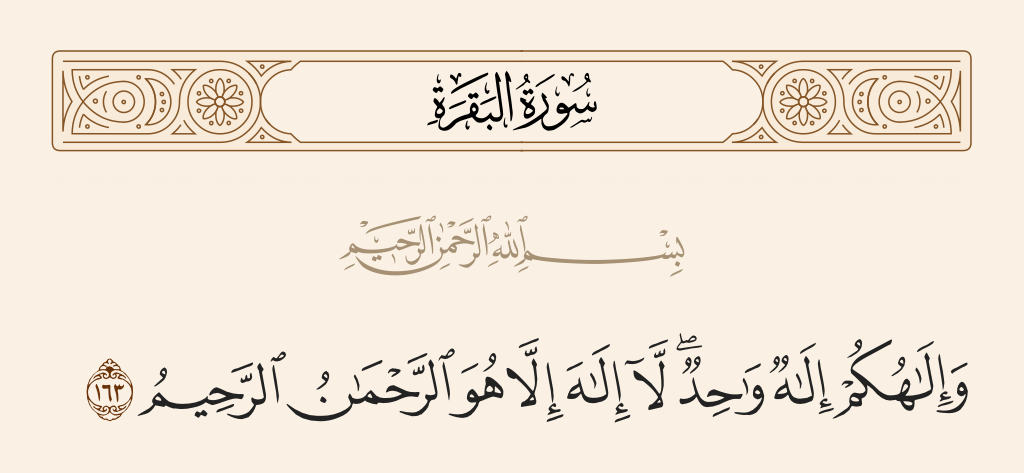 سُورَةُ البَقَرَةِ
بِسْمِ ٱللَّهِ ٱلرَّحْمَٰنِ ٱلرَّحِيمِ
وَإِلَٰهُكُمْ إِلَٰهٌ وَٰحِدٌ ۖ لَّآ إِلَٰهَ إِلَّا هُوَ ٱلرَّحْمَٰنُ ٱلرَّحِيمُ ١٦٣